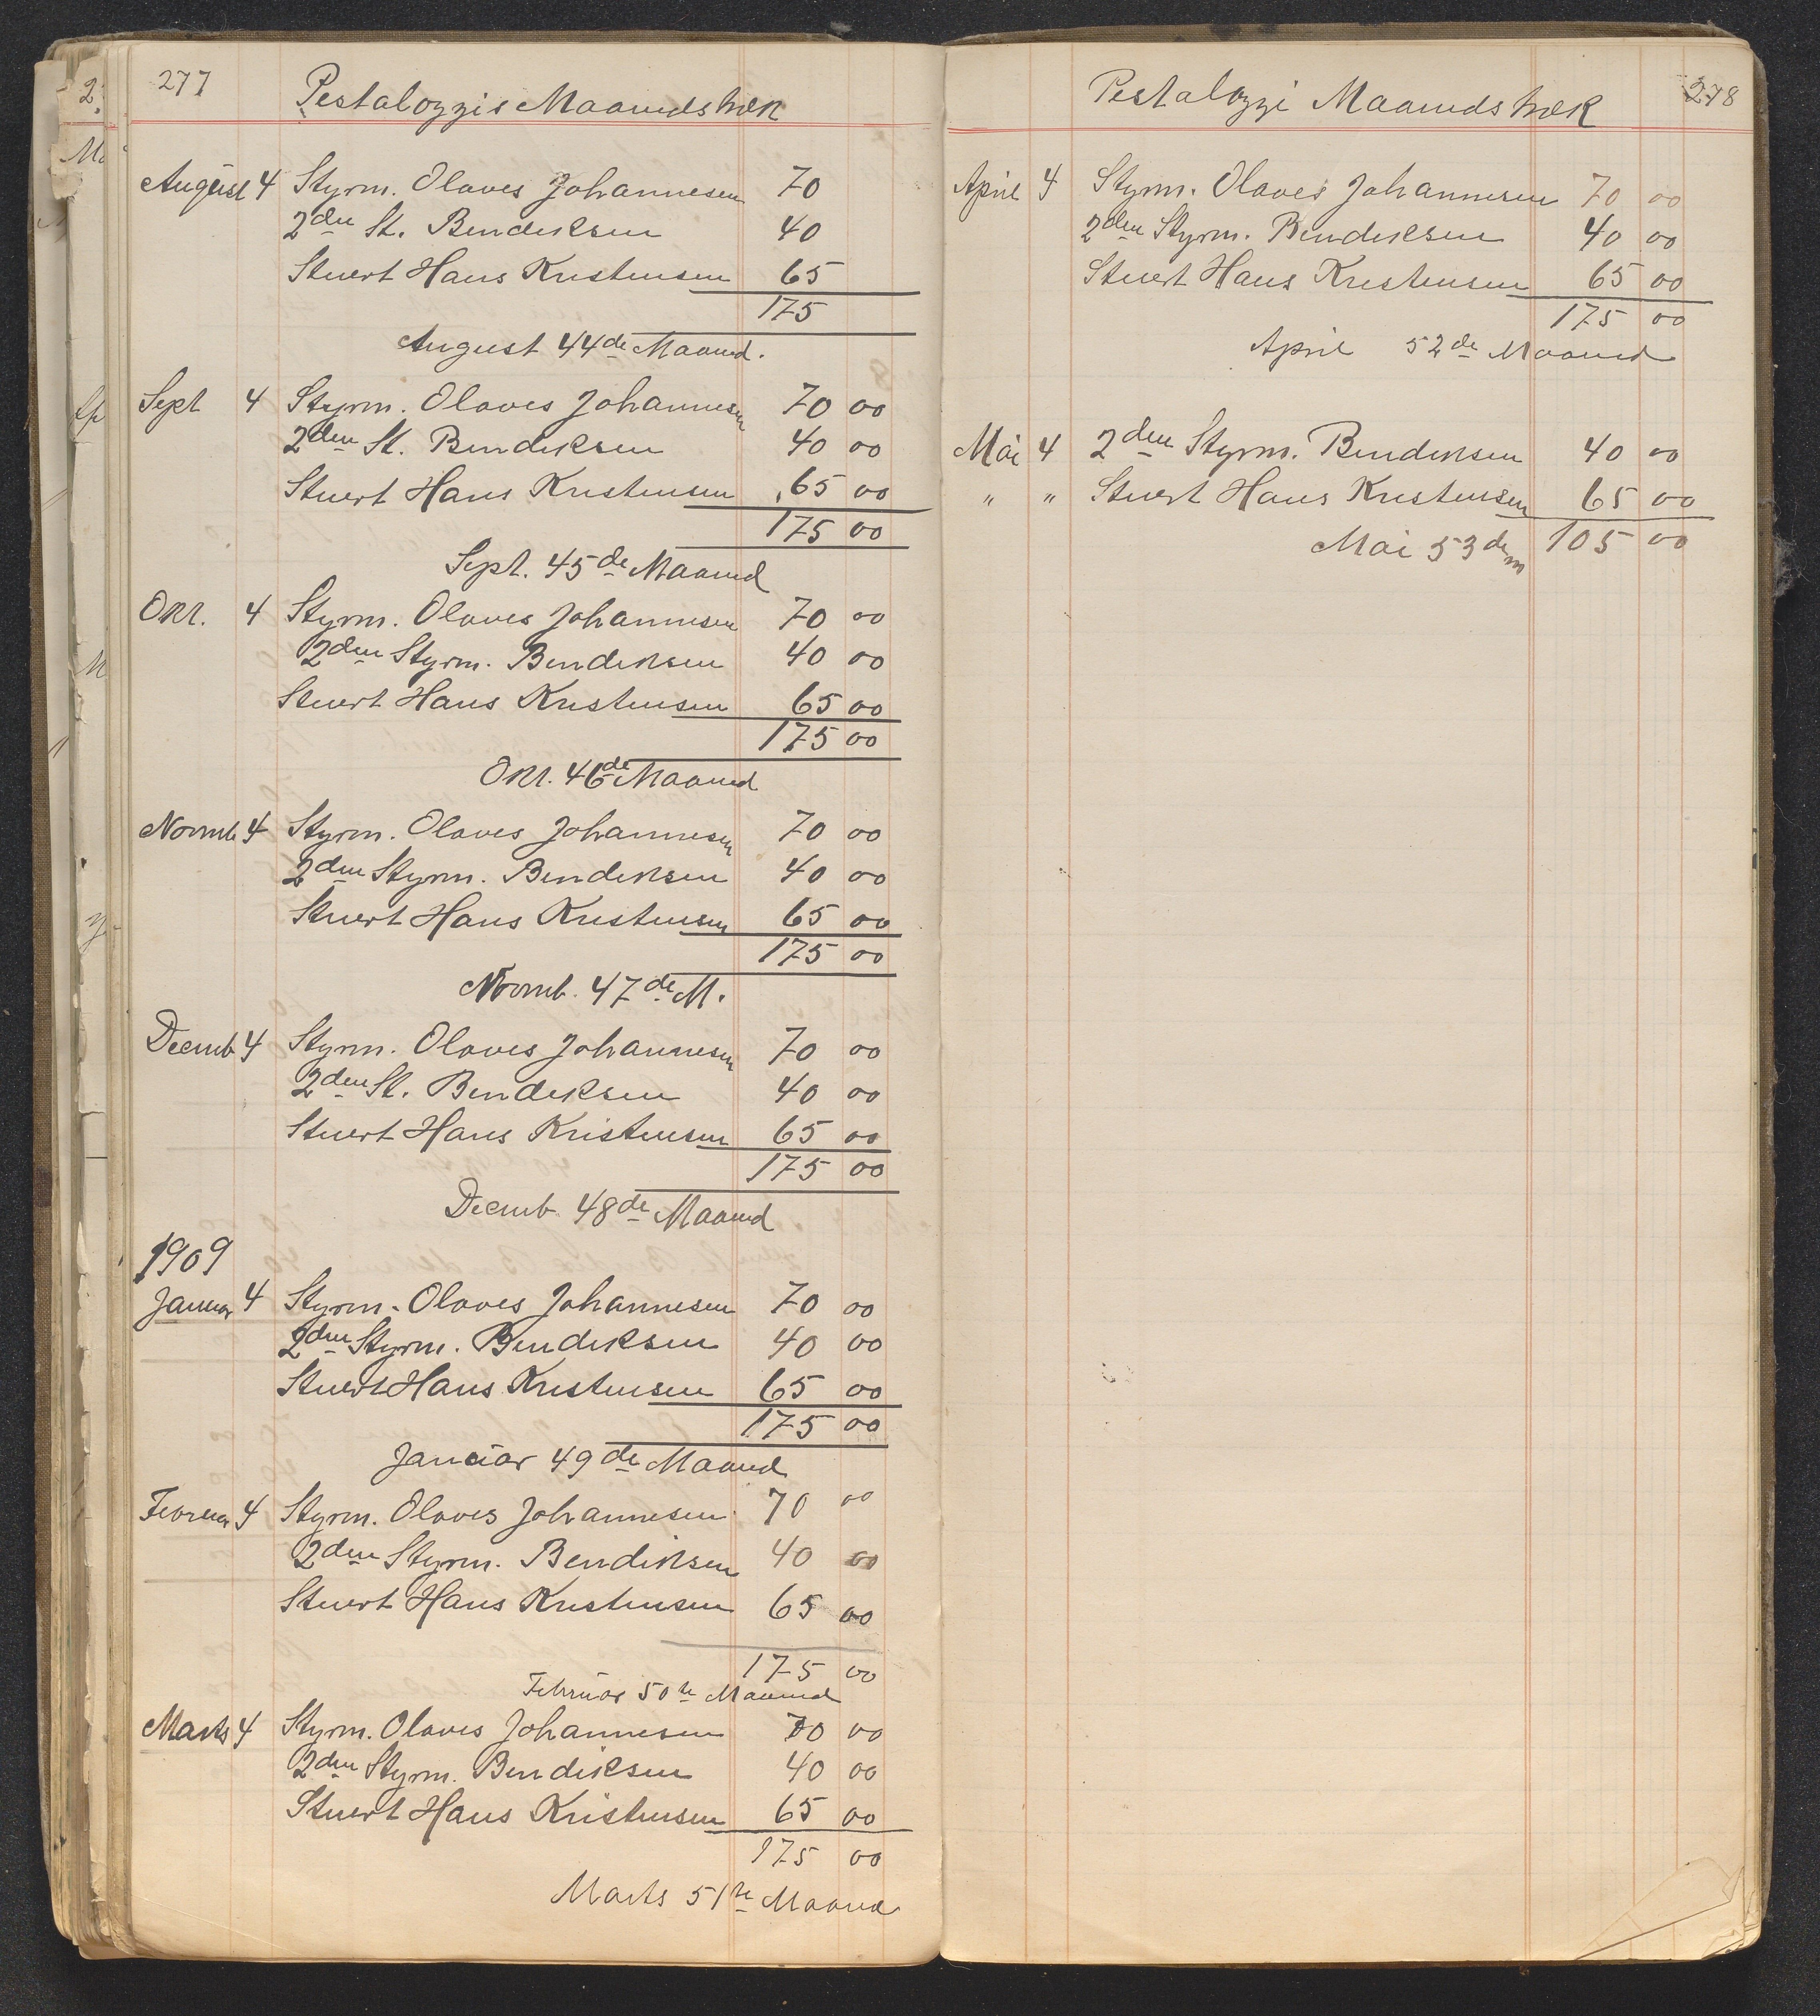 277
Pestalozzis Maanedstræk
August 4 Styrm. Olaves Johannesen 70
2den St. Bendiksen 40
Stuert Hans Kristensen 65
175
August 44de Maaned.
Sept 4 Styrm. Olaves Johannesen 70 00
2den St. Bendiksen 40 00
Stuert Hans Kristensen 65 00
175 00
Sept. 45de Maaned
Okt. 4 Styrm. Olaves Johannesen 70 00
2den Styrm. Bendiksen 40 00
Stuert Hans Kristensen 65 00
175 00
Okt. 46de Maaned
Novmb 4 Styrm. Olaves Johannesen 70 00
2den Styrm. Bendiksen 40 00
Stuert Hans Kristensen 65 00
175 00
Novmb. 47de M.
Decmb 4 Styrm. Olaves Johannesen 70 00
2den St. Bendiksen 40 00
Stuert Hans Kristensen 65 00
175 00
Decmb 48de Maaned
1909
Januar 4 Styrm. Olaves Johannesen 70 00
2den Styrm. Bendiksen 40 00
Stuert Hans Kristensen 65 00
175 00
Januar 49de Maaned
Februar 4 Styrm. Olaves Johannesen 70 00
2den Styrm. Bendiksen 40 00
Stuert Hans Kristensen 65 00
175 00
Februar 50te Maaned
Marts 4 Styrm. Olaves Johannesen 70 00
2den Styrm. Bendiksen 40 00
Stuert Hans Kristensen 65 00
175 00
Marts 51te Maaned
Pestalozzi Maanedstræk
278
April 4 Styrm. Olaves Johannesen 70 00
2den Styrm. Bendiksen 40 00
Stuert Hans Kristensen 65 00
175 00
April 52de Maaned
Mai 4 2den Styrm. Bendiksen 40 00
" " Stuert Hans Kristensen 65 00
Mai 53de m 105 00